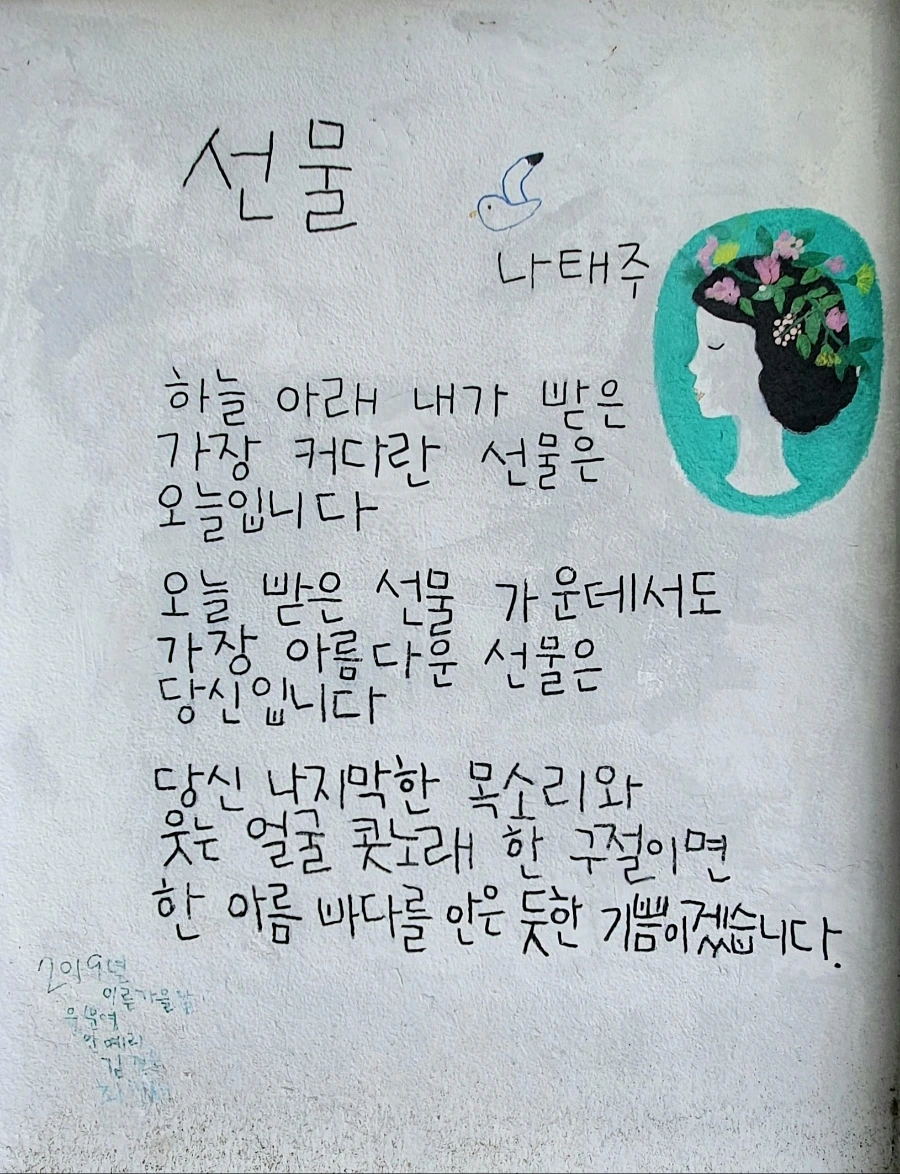 선물
나태주
하늘 아래 내가 받은
가장 커다란 선물은
오늘입니다
오늘 받은 선물 가운데서도
가장 아름다운 선물은
당신입니다
당신 나지막한 목소리와
웃는 얼굴 콧노래 한 구절이면
한 아름 바다를 안은 듯한 기쁨이겠습니다.
2019년
이른가을날
안예리